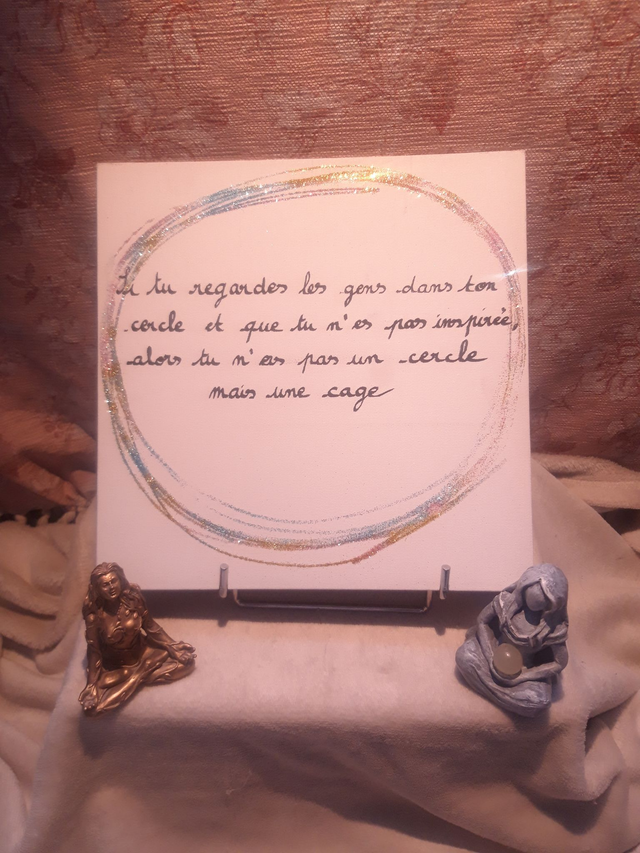 Si tu regardes les gens dans ton
cercle et que tu n'es pas inspirée,
alors tu n'as pas un cercle
mais une cage